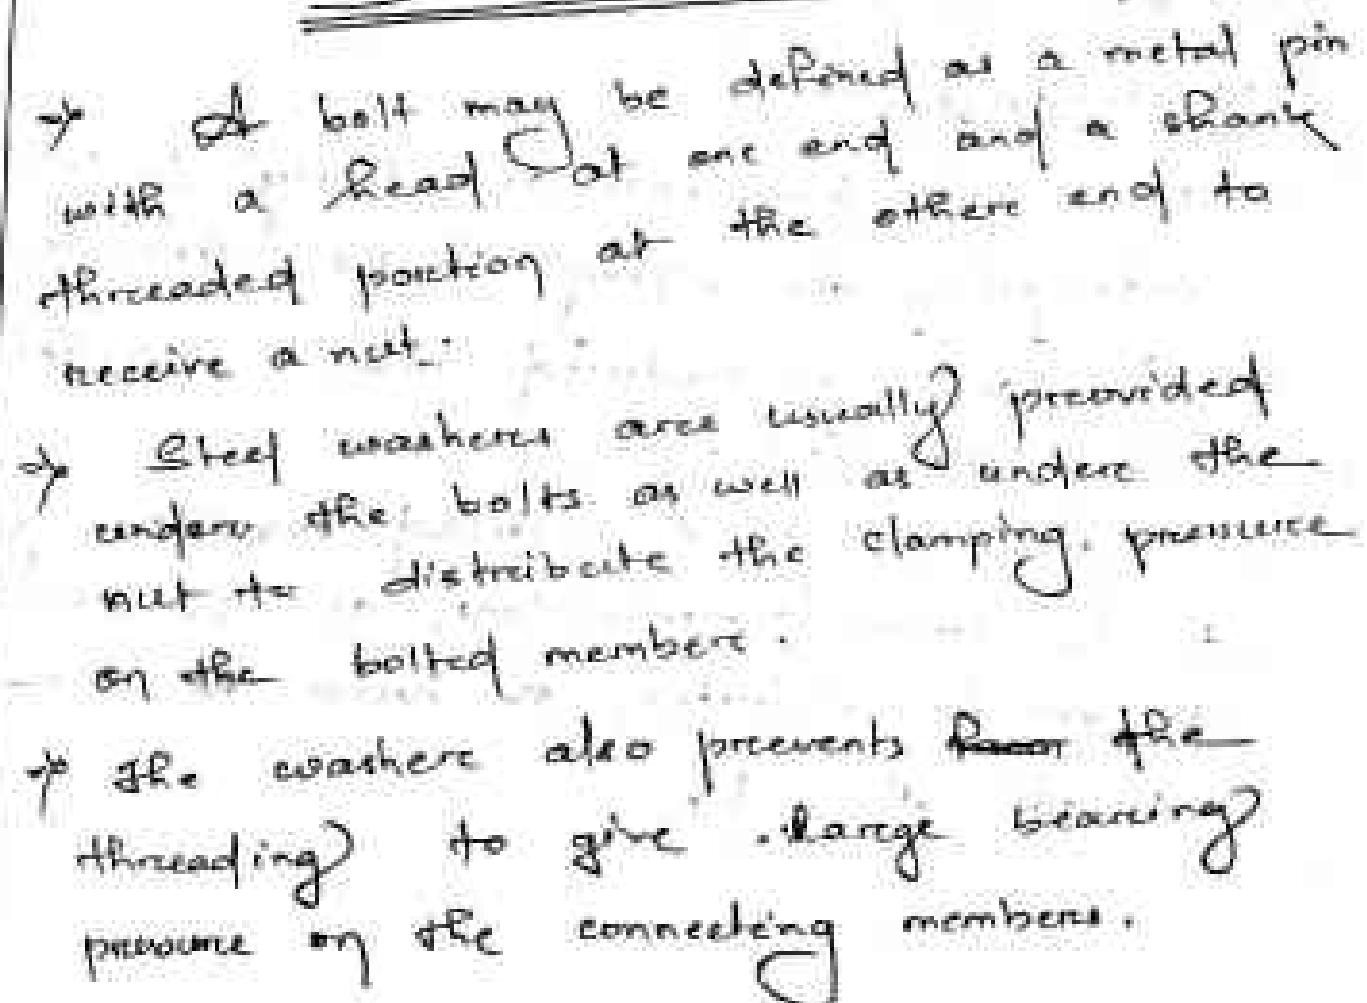 → A bolt may be defined as a metal pin
with a head at one end and a shank
threaded portion at the other end to
receive a nut.
→ Steel washers are usually provided
under the bolts as well as under the
nut to distribute the clamping pressure
on the bolted member.
→ The washer also prevents the
threading to give large bearing
pressure on the connecting members.